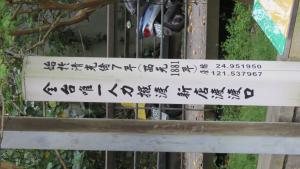 始於清光緒7年(西元1881年) 座標 24.951950
121.537967
全台唯一人力擺渡 新店渡渡口